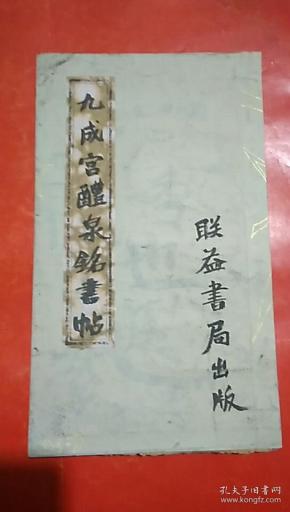 九成宫醴泉銘書帖
联益書局出版
孔夫子旧书网
www.kongfz.com